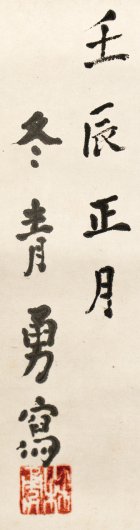 壬辰正月
冬青勇寫